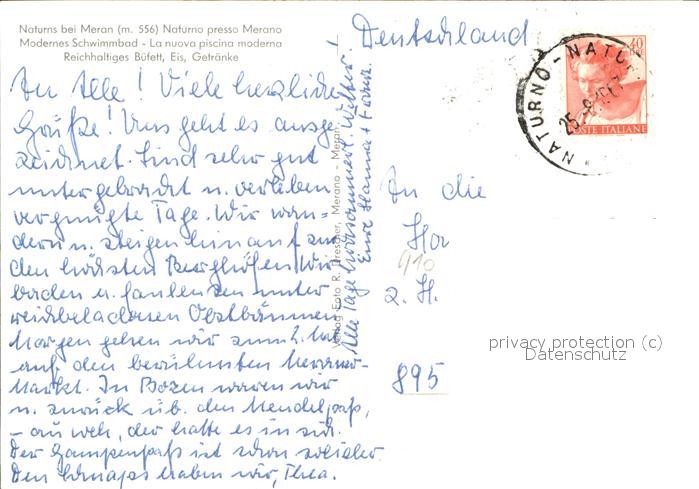 Naturns bei Meran (m. 556) Naturno presso Merano
Modernes Schwimmbad - La nuova piscina moderna
Reichhaltiges Büfett, Eis, Getränke
An Alle! Viele herzliche
Grüße! Uns geht es ausge-
zeichnet. Sind sehr gut
untergebracht u. verleben
vergnügte Tage. Wir wan-
dern u. steigen hinauf zu
den höchsten Berghöfen. Wir
baden u. faulenzen unter
reichbeladenen Obstbäumen
Morgen gehen wir zum 2. Mal
auf den berühmten Meraner-
Markt. In Bozen waren wir
u. zurück üb. den Mendelpaß,
- au weh, der hatte es in sich.
Der Gampenpaß ist schon solider.
Den Schnaps haben wir, Thea.
Alle Tage Wetter!
Eure Hanna +
Verlag Foto R. Drescher, Merano - Meran
Deutschland
An die
910
z. H.
895
NATURNO - NATURNS
40
POSTE ITALIANE
privacy protection (c)
Datenschutz